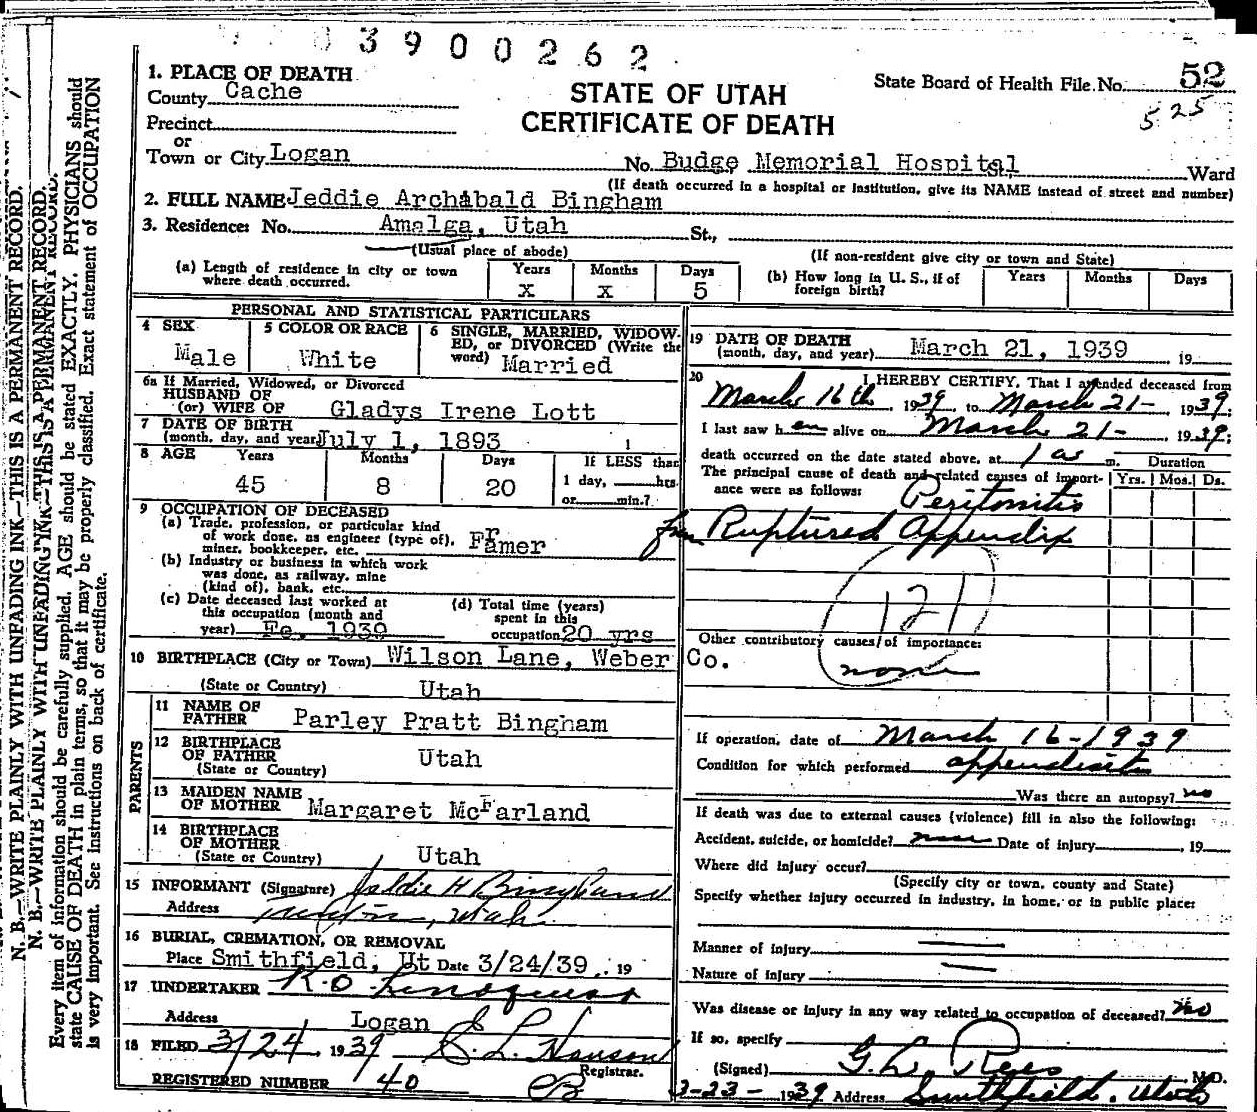 03900262
1. PLACE OF DEATH
County Cache
STATE OF UTAH
CERTIFICATE OF DEATH
State Board of Health File No. 52
525
Precinct
or
Town or City Logan No. Budge Memorial Hospital Ward
(If death occurred in a hospital or institution, give its NAME instead of street and number)
2. FULL NAME Jeddie Archibald Bingham
3. Residence: No. Amalga, Utah St.,
(Usual place of abode)
(If non-resident give city or town and State)
(a) Length of residence in city or town where death occurred. Years X Months X Days 5
(b) How long in U. S., if of foreign birth? Years Months Days
PERSONAL AND STATISTICAL PARTICULARS
4 SEX Male
5 COLOR OR RACE White
6 SINGLE, MARRIED, WIDOW-
ED, or DIVORCED (Write the
word) Married
6a If Married, Widowed, or Divorced
HUSBAND OF
(or) WIFE OF Gladys Irene Lott
7 DATE OF BIRTH
(month, day, and year) July 1, 1893
8 AGE Years Months Days If LESS than
45 8 20 1 day, hrs.
or min.?
9 OCCUPATION OF DECEASED
(a) Trade, profession, or particular kind
of work done, as engineer (type of),
miner, bookkeeper, etc. Framer
(b) Industry or business in which work
was done, as railway, mine
(kind of), bank, etc.
(c) Date deceased last worked at
this occupation (month and
year) Fe, 1939
(d) Total time (years)
spent in this
occupation 20 yrs
10 BIRTHPLACE (City or Town) Wilson Lane, Weber Co.
(State or Country) Utah
PARENTS
11 NAME OF
FATHER Parley Pratt Bingham
12 BIRTHPLACE
OF FATHER Utah
(State or Country)
13 MAIDEN NAME
OF MOTHER Margaret McFarland
14 BIRTHPLACE
OF MOTHER
(State or Country) Utah
15 INFORMANT (Signature) H Bingham
Address Trenton, Utah
16 BURIAL, CREMATION, OR REMOVAL
Place Smithfield, Ut Date 3/24/39 , 19
17 UNDERTAKER K. O. Lindquist
Address Logan
18 FILED 3/24, 1939 Hanson
Registrar.
REGISTERED NUMBER 40
19 DATE OF DEATH
(month, day, and year) March 21, 1939 , 19
20 I HEREBY CERTIFY, That I attended deceased from
March 16th, 1939, to March 21-, 1939,
I last saw h alive on March 21-, 1939;
death occurred on the date stated above, at 1 a m. Duration
The principal cause of death and related causes of import-
ance were as follows: Yrs. Mos. Ds.
Peritonitis
from Ruptured Appendix
121
Other contributory causes of importance:
none
If operation, date of March 16-1939
Condition for which performed appendicitis
Was there an autopsy? no
If death was due to external causes (violence) fill in also the following:
Accident, suicide, or homicide? none Date of injury , 19
Where did injury occur?
(Specify city or town, county and State)
Specify whether injury occurred in industry, in home, or in public place:
Manner of injury
Nature of injury
Was disease or injury in any way related to occupation of deceased? No
If so, specify
(Signed) G. L. Rees M.D.
3-23- 1939 Address Smithfield. Utah
N. B.—WRITE PLAINLY WITH UNFADING INK—THIS IS A PERMANENT RECORD.
N. B.—WRITE PLAINLY WITH UNFADING INK—THIS IS A PERMANENT RECORD.
Every item of information should be carefully supplied. AGE should be stated EXACTLY. PHYSICIANS should
state CAUSE OF DEATH in plain terms, so that it may be properly classified. Exact statement of OCCUPATION
is very important. See instructions on back of certificate.